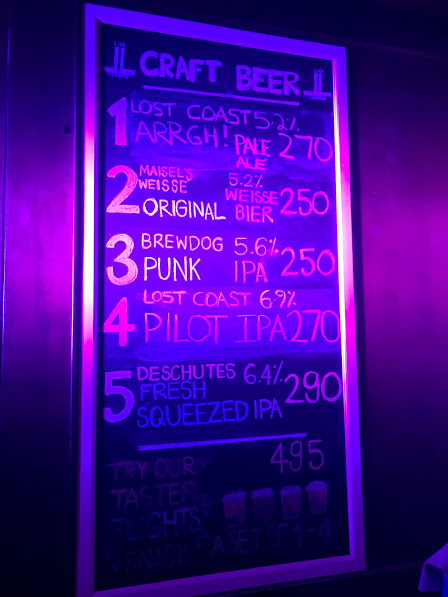 CRAFT BEER
1 LOST COAST 5.2%
ARRGH! PALE ALE 270
2 MAISEL'S WEISSE 5.2%
ORIGINAL WEISSE BIER 250
3 BREWDOG 5.6%
PUNK IPA 250
4 LOST COAST 6.9%
PILOT IPA 270
5 DESCHUTES 6.4%
FRESH 290
SQUEEZED IPA
TRY OUR 495
TASTER
FLIGHTS
+SNACK A SET OF 1-4